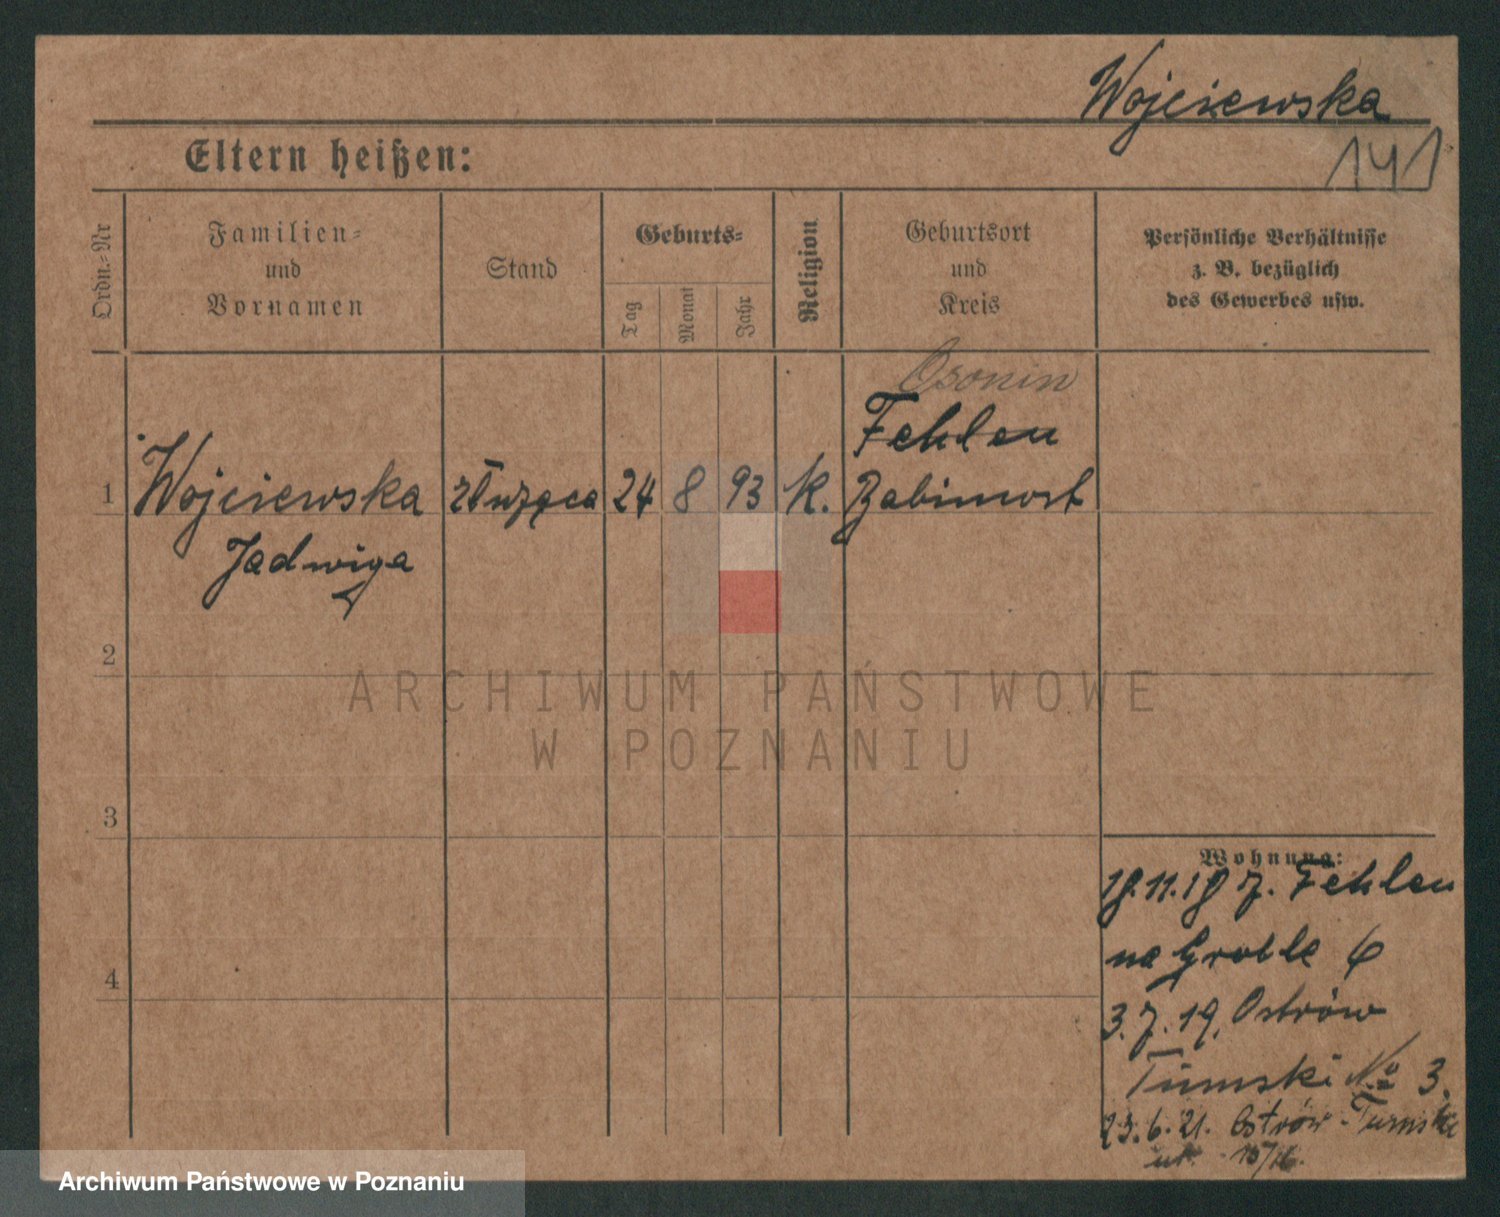 Wojciewska
141
Eltern heißen:
Ordn.-Nr
Familien- und Vornamen
Stand
Geburts-
Tag
Monat
Jahr
Religion
Geburtsort und Kreis
Persönliche Verhältnisse z. B. bezüglich des Gewerbes usw.
Osonin
Fehlen
1 Wojciewska służąca 24 8 93 k. Babimost
Jadwiga
2
ARCHIWUM PAŃSTWOWE
W POZNANIU
3
4
Wohnung:
18.11.18 z. Fehlen
na Groble 6
3.7.19. Ostrów
Tumski No 3.
23.6.21. Ostrów-Tumski
Archiwum Państwowe w Poznaniu